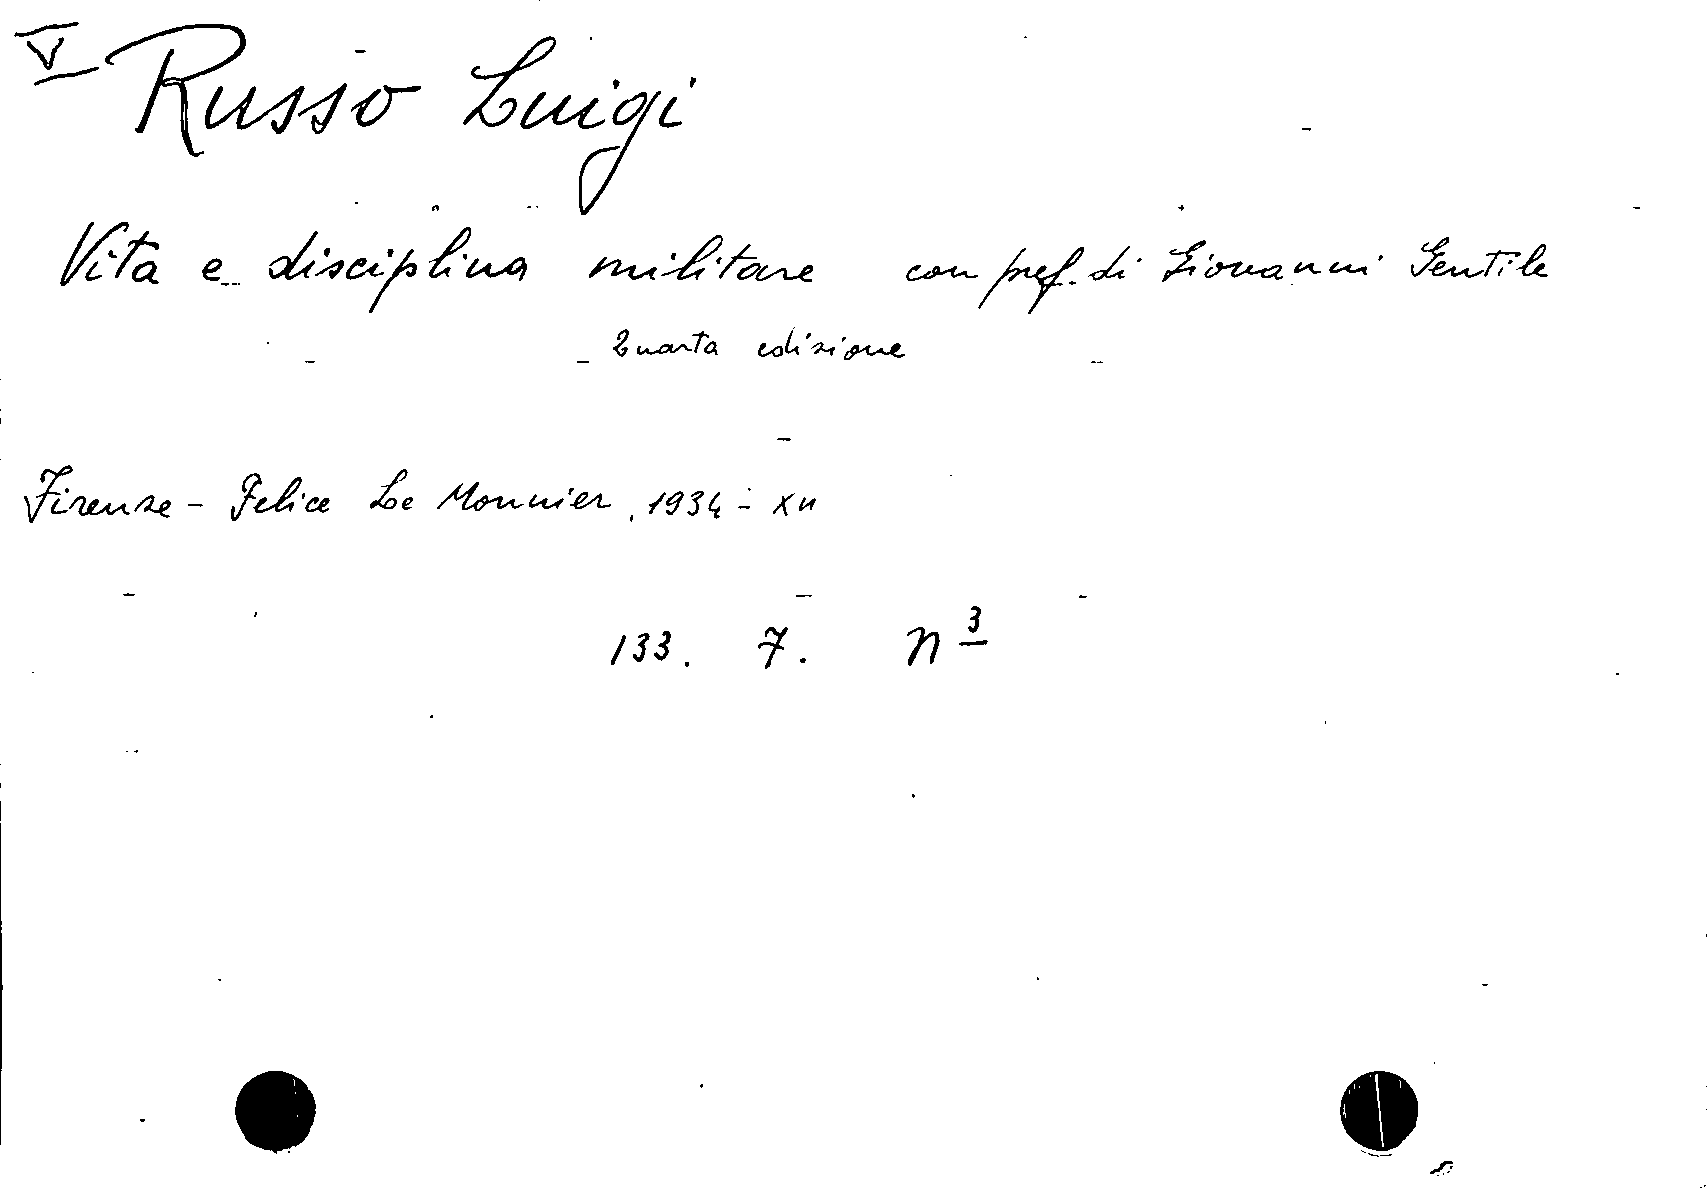 V Russo Luigi
Vita e disciplina militare con pref. di Giovanni Gentile
Quarta edizione
Firenze - Felice Le Monnier, 1934 - XII
133. 7. n 3